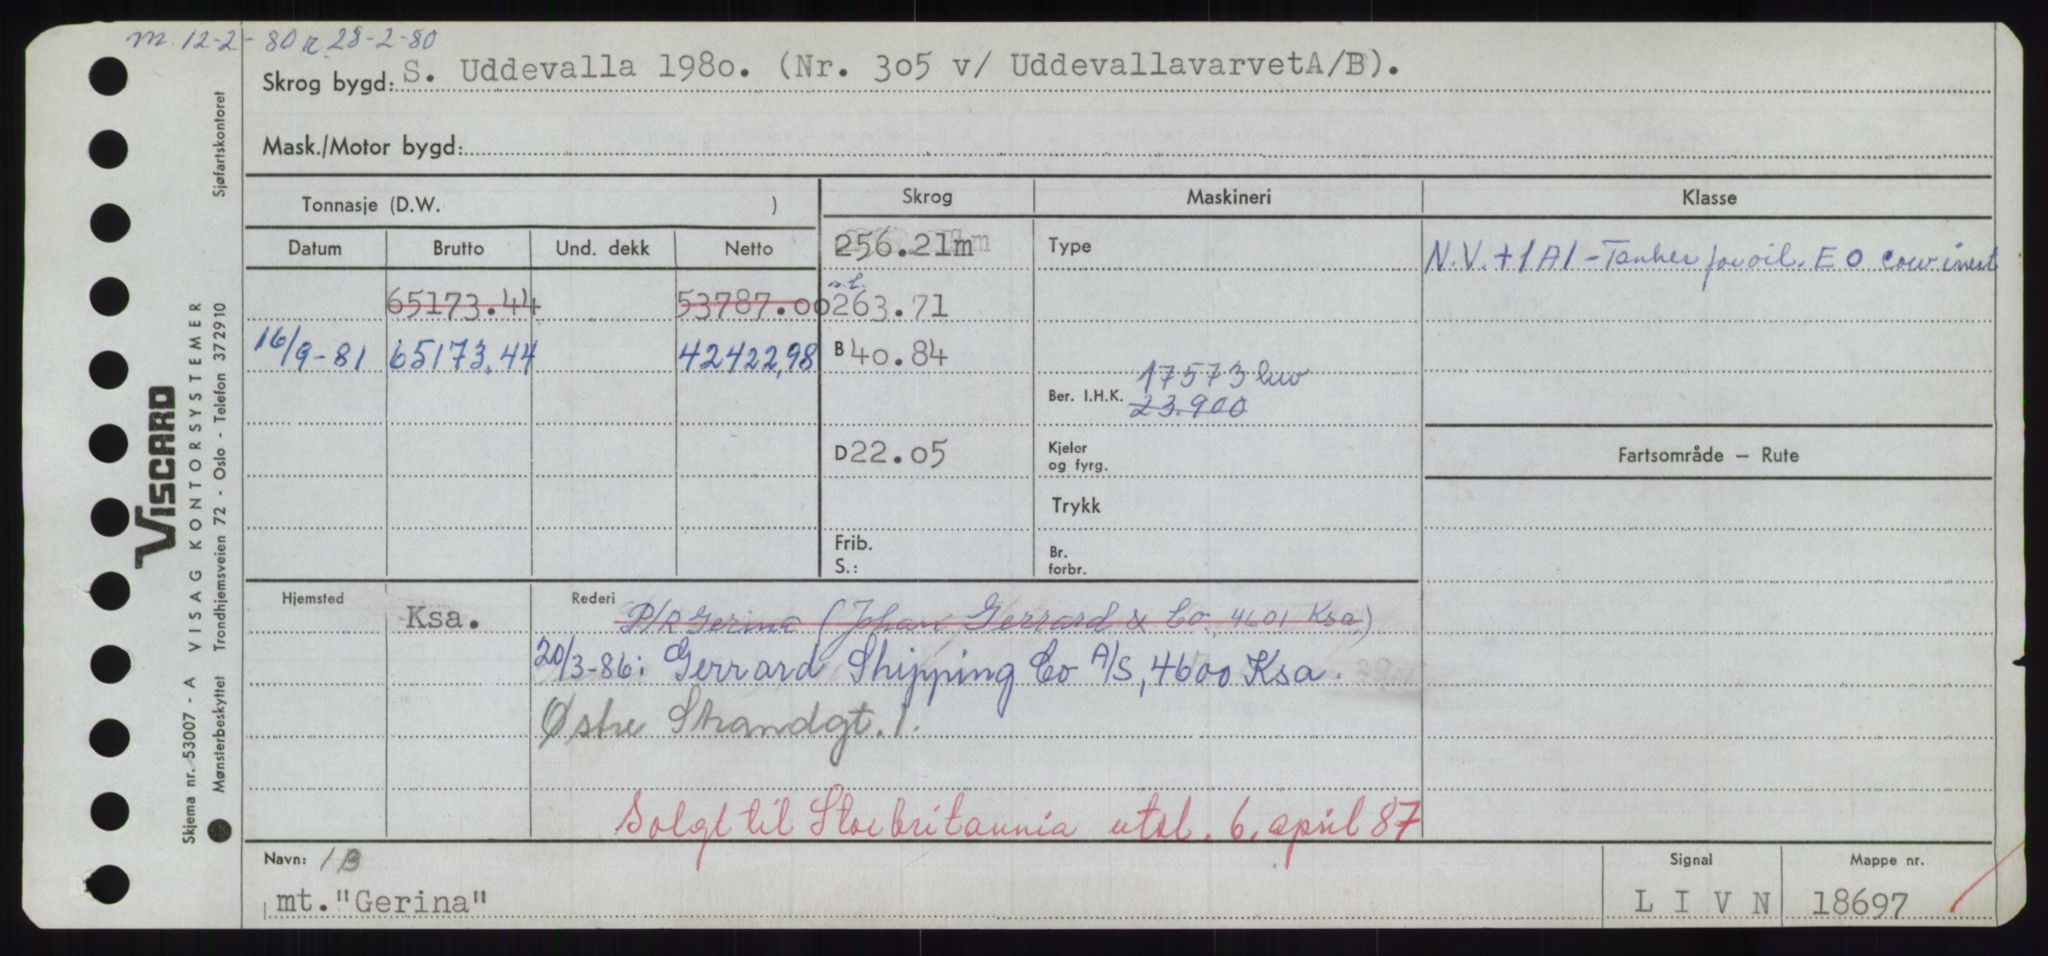 m. 12-2-80 r 28-2-80
Skrog bygd: S. Uddevalla 1980. (Nr. 305 v/ UddevallavarvetA/B).
Mask./Motor bygd:
Tonnasje (D.W. )
Skrog
Maskineri
Klasse
Datum Brutto Und. dekk Netto
256.21m
Type
N.V. + 1A1 - Tanker for oil. E O cow inert
65173.44 53787.00
s.l.
263.71
16/9-81 65173,44 42422,98
B 40.84
17573 kw
Ber. I.H.K. 23.900
D 22.05
Kjeler
og fyrg.
Fartsområde — Rute
Trykk
Frib.
S.:
Br.
forbr.
Hjemsted Ksa.
Rederi
P/R Gerina (Johan Gerrard & Co., 4601 Ksa)
20/3-86: Gerrard Shipping Co A/S, 4600 Ksa.
Østre Strandgt. 1.
Solgt til Storbritannia utsl. 6. april 87
Navn: 1B
mt. "Gerina"
Signal
L I V N
Mappe nr.
18697
VISCARD
Skjema nr. 53007 - A VISAG KONTORSYSTEMER
Mønsterbeskyttet Trondhjemsveien 72 - Oslo - Telefon 372910 Sjøfartskontoret